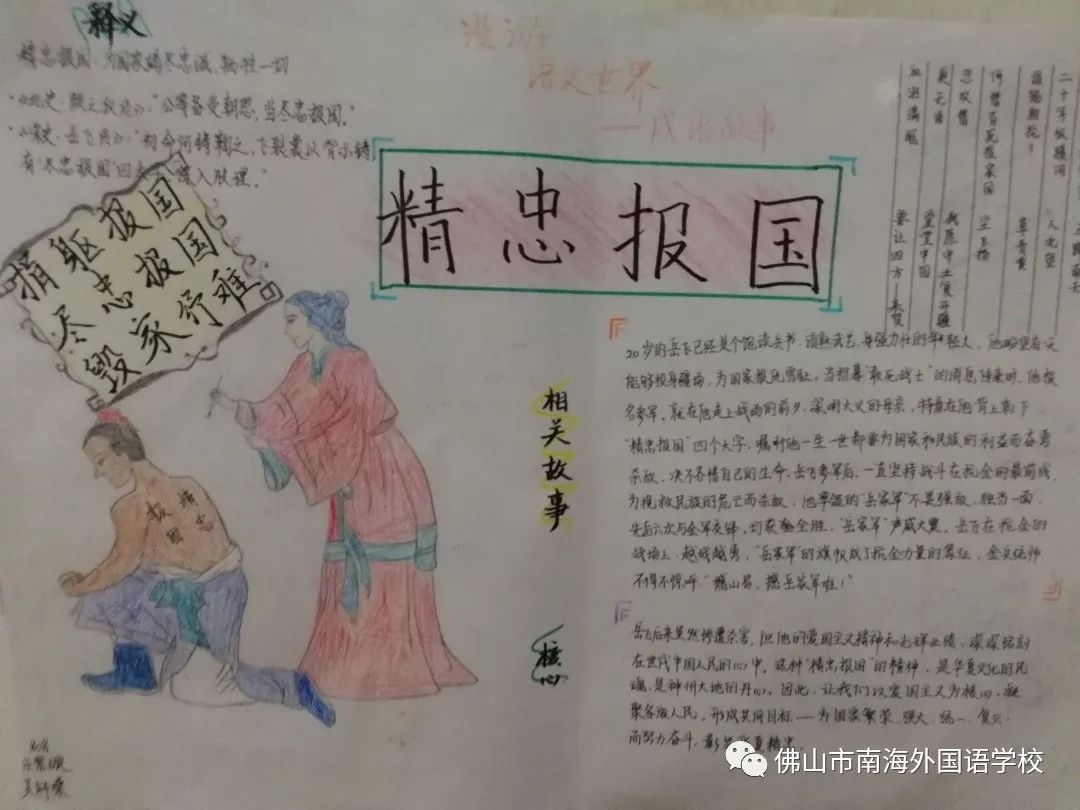 释义
精忠报国:为国家竭尽忠诚,牺牲一切
《北史·颜之仪传》:"公等备受朝恩,当尽忠报国。"
《宋史·岳飞传》:"初命何铸鞫之,飞裂裳以背示铸,
有'尽忠报国'四大 深入肤理。"
漫游
语文世界
——成语故事
精忠报国
捐躯报国
尽忠报国
毁家纾难
精忠
报国
人北望
草青黄
尘飞扬
我愿守土复开疆
堂堂中国
要让四方
来贺
相关故事
20岁的岳飞已经是个饱读兵书、谙熟武艺、身强力壮的年轻人,他盼望有一天
能够投身疆场,为国家报仇雪耻。当招募"敢死战士"的消息传来时,他报
名参军,就在他走上战场的前夕,深明大义的母亲,特意在他背上刺下
"精忠报国"四个大字,嘱咐他一生一世都要为国家和民族的利益而奋勇
杀敌,决不吝惜自己的生命,岳飞参军后,一直坚持战斗在抗金的最前线,
为挽救民族的危亡而杀敌,他率领的"岳家军"不畏强敌,独当一面,
先后六次与金军交锋,均获全胜,"岳家军"声威大震,岳飞在抗金的
战场上,越战越勇,"岳家军"的旗帜成了抗金力量的象征,金兵统帅
不得不惊呼:"撼山易,撼岳家军难!"
核心
岳飞后来虽然惨遭杀害,但他的爱国主义精神和光辉业绩,深深铭刻
在世代中国人民的心中。这种"精忠报国"的精神,是华夏文化的民
魂,是神州大地的丹心。因此,让我们以爱国主义为核心,凝
聚各族人民,形成共同目标——为国家繁荣、强大、统一、复兴
而努力奋斗,
808
佛山市南海外国语学校